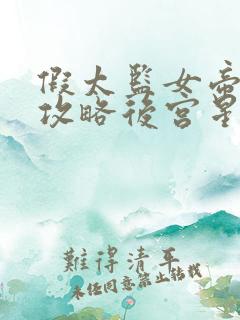 假太監女帝
攻略後宮是
難得清平
未經同意禁止轉載